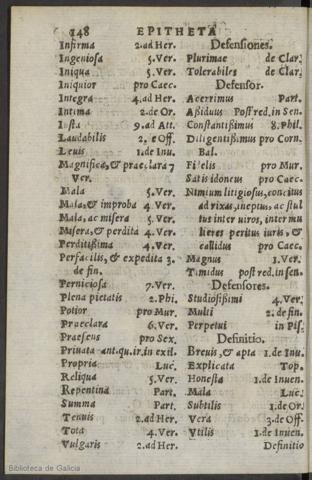 148 EPITHETA
Infirma 2.ad Her.
Ingeniosa 5.Ver.
Iniqua 5.Ver.
Iniquior pro Caec.
Integra 4.ad Her.
Intima 2.de Or.
Iusta 9.ad Att.
Laudabilis 2.de Off.
Leuis 1.de Inu.
Magnifica, & praeclara 7
Ver.
Mala 5.Ver.
Mala, & improba 4 Ver.
Mala, ac misera 5 Ver.
Misera, & perdita 4.Ver.
Perditißima 4.Ver.
Perfacilis, & expedita 3.
de fin.
Perniciosa 7.Ver.
Plena pietatis 2.Phi.
Potior pro Mur.
Praeclara 6.Ver.
Praesens pro Sex.
Priuata ant.qu.ir.in exil.
Propria Luc.
Reliqua 5.Ver.
Repentina Part.
Summa Part.
Tenuis 2.ad Her.
Tota 4.Ver.
Vulgaris 2.ad Her.
Defensiones.
Plurimae de Clar.
Tolerabiles de Clar.
Defensor.
Acerrimus Part.
Aßiduus Post red.in Sen.
Constantißimus 8.Phil.
Diligentißimus pro Corn.
Bal.
Fidelis pro Mur.
Satis idoneus pro Caec.
Nimium litigiosus, concitus
ad rixas, ineptus, ac stul
tus inter uiros, inter mu
lieres peritus iuris, &
callidus pro Caec.
Magnus 1.Ver.
Timidus post red.in sen.
Defensores.
Studiosißimi 4.Ver.
Multi 2.de fin.
Perpetui in Pis.
Definitio.
Breuis, & apta 1.de Inu.
Explicata Top.
Honesta 1.de Inuen.
Mala Luc.
Subtilis 1.de Or.
Vera 3.de Off.
Vtilis 1.de Inuen.
Definitio
Biblioteca de Galicia